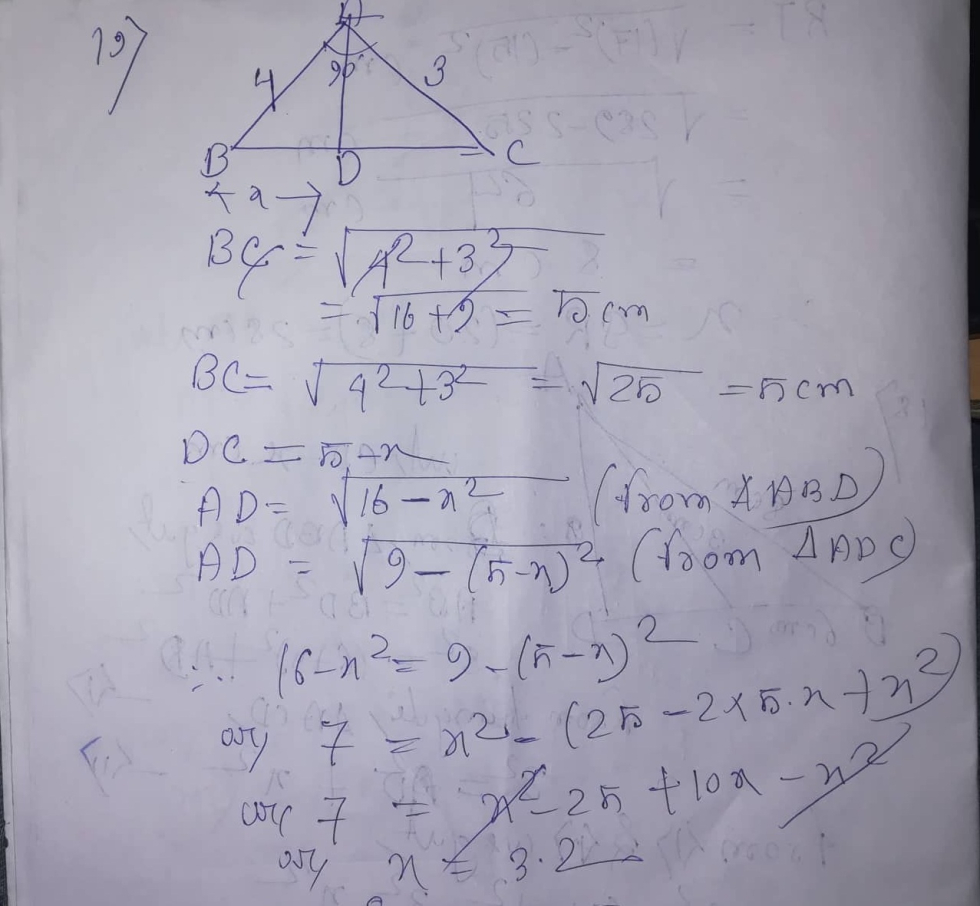 19)
A
4 90° 3
B D C
← x →
BC = √4²+3²
= √16+9 = 5cm
BC = √4²+3² = √25 = 5cm
DC = 5-x
AD = √16-x² (from ΔABD)
AD = √9-(5-x)² (from ΔADC)
∴ 16-x² = 9-(5-x)²
or, 7 = x²-(25-2×5.x+x²)
or, 7 = x²-25+10x-x²
or, x = 3.2